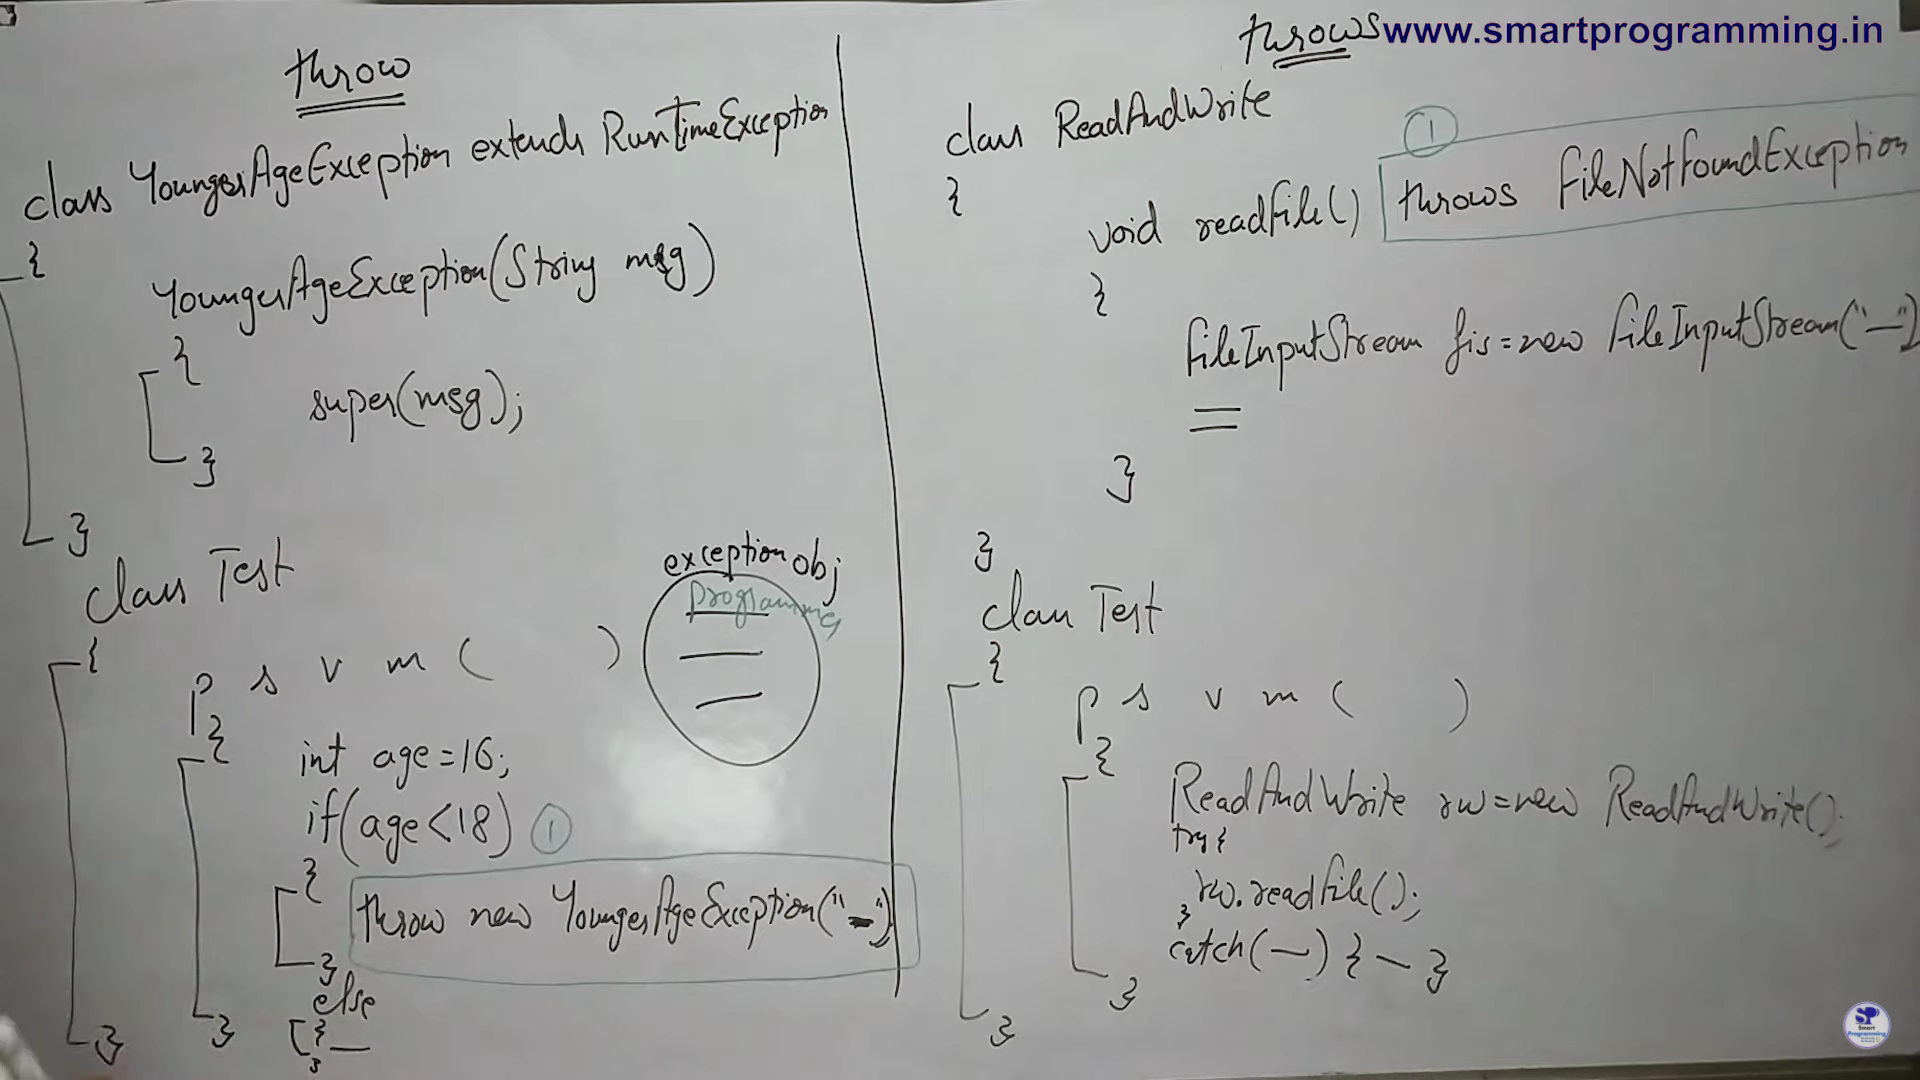 throw
class YoungerAgeException extends RunTimeException
{
YoungerAgeException(String msg)
{
super(msg);
}
}
class Test
{
p s v m ( )
{
int age=16;
if(age<18) ①
{
throw new YoungerAgeException("—")
}
else
{
—
}
}
}
exception obj
programmer
throws
www.smartprogramming.in
class ReadAndWrite
{
①
void readFile() throws FileNotFoundException
{
FileInputStream fis=new FileInputStream("—")
}
}
class Test
{
p s v m ( )
{
ReadAndWrite rw=new ReadAndWrite();
try{
rw.readFile();
}
catch(—) { — }
}
}
SP
Smart
Programming